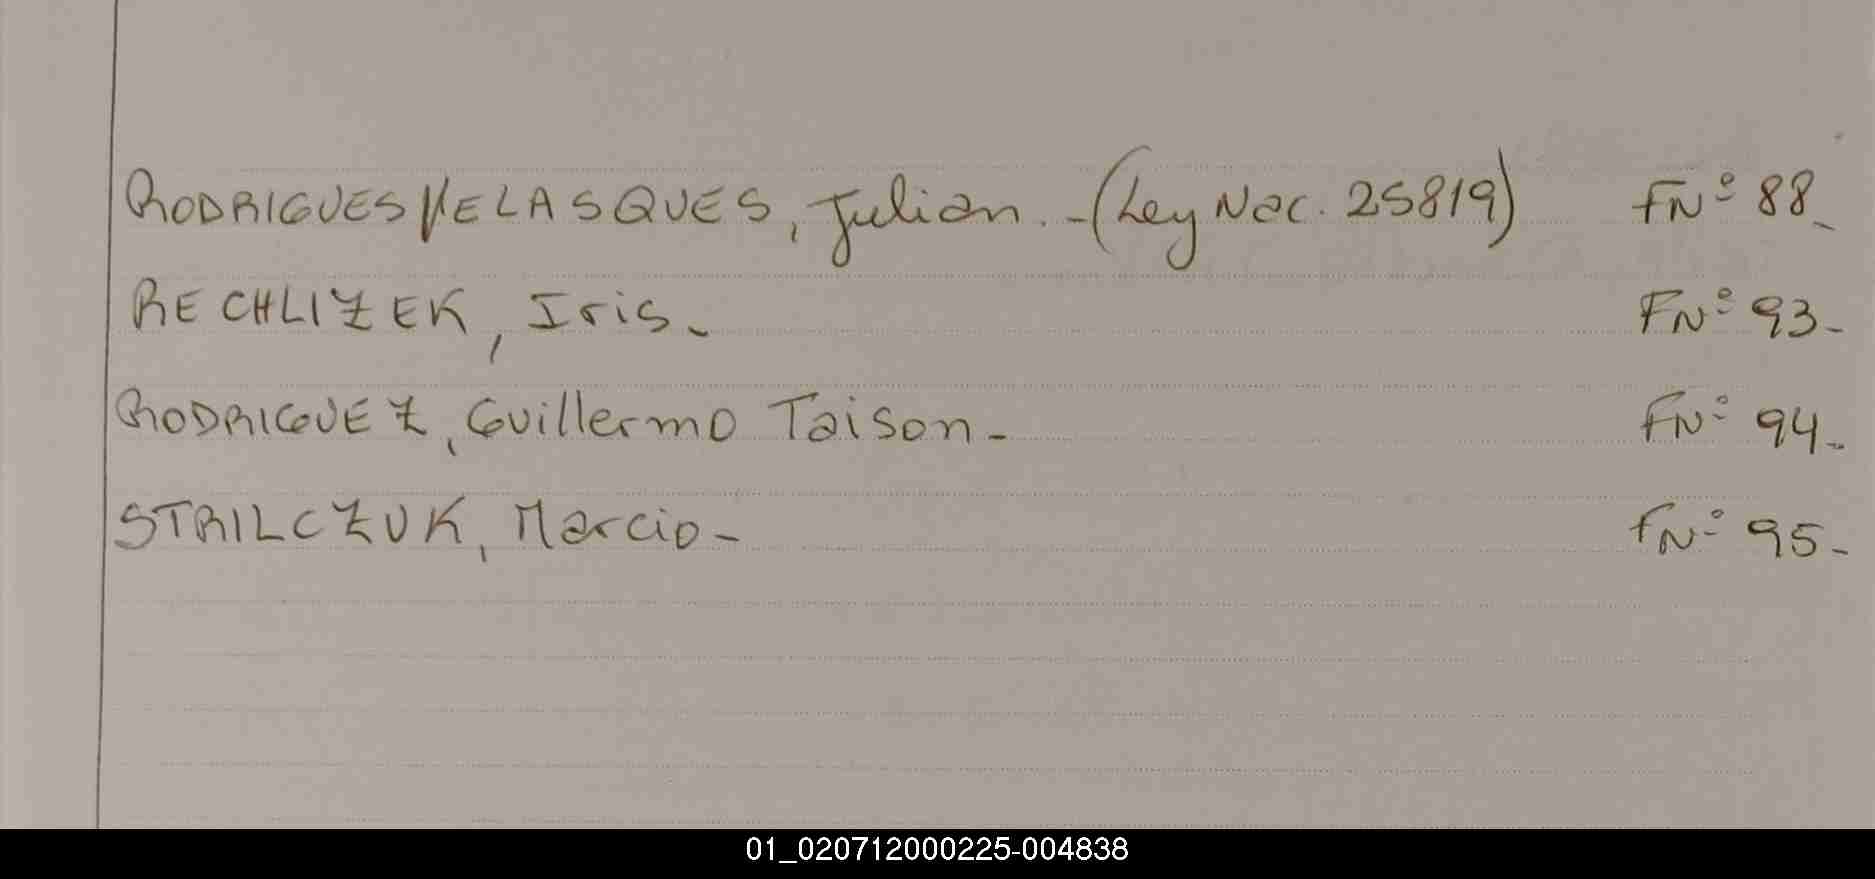 RODRIGUES VELASQUES, Julian. - (Ley Nac. 25819) FNº 88-
RECHLIZEK, Iris- FNº 93-
RODRIGUEZ, Guillermo Taison- FNº 94-
STRILCZUK, Marcio- FNº 95-
01_020712000225-004838